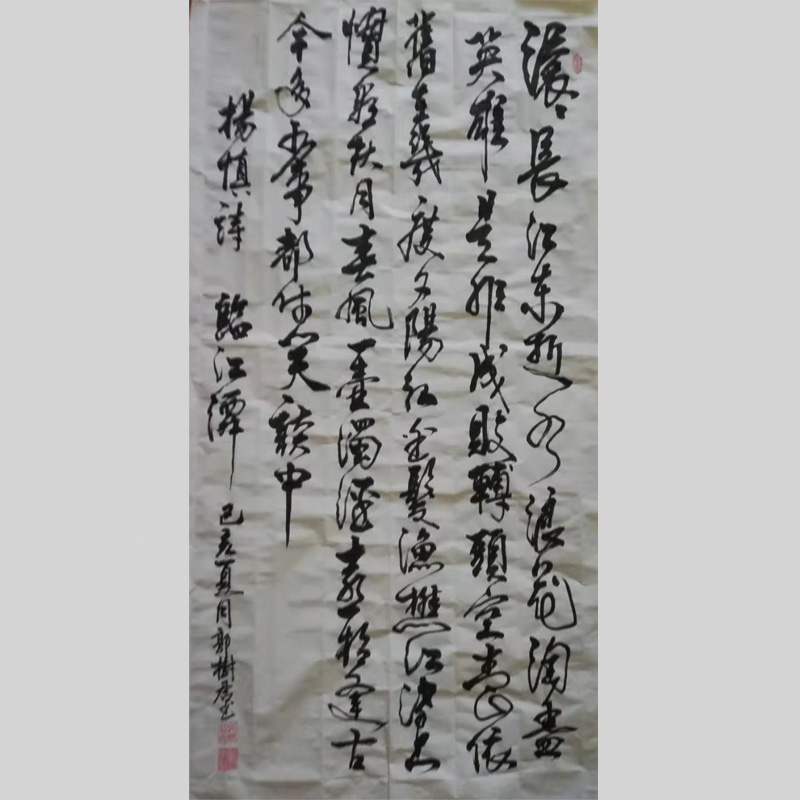 滾〻長江東逝水浪花淘盡
英雄是非成敗轉頭空青山依
舊在幾度夕陽紅白髮漁樵江渚上
慣看秋月春風一壺濁酒喜相逢古
今多少事都付笑談中
楊慎詩 臨江潭 己亥夏月郭樹